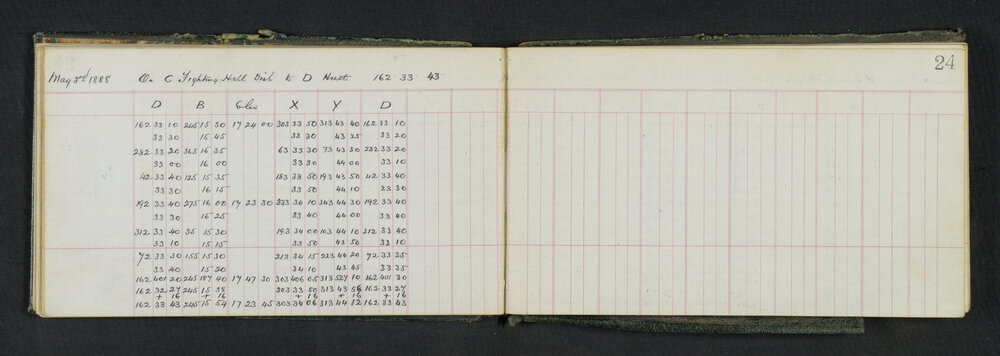 24
May 3rd 1888 On C Fighting Hill Dist to D Hutt 162 33 43
D B X Y D
162 33 10 245 15 30 17 24 00 303 33 50 313 43 40 162 33 10
33 30 15 45 33 30 43 25 33 20
282 33 20 365 16 35 63 33 30 73 43 30 282 33 20
33 00 16 00 33 30 44 00 33 10
42 33 40 125 15 35 183 33 50 193 43 50 42 33 40
33 30 16 15 33 50 44 10 33 30
192 33 40 275 16 00 17 23 30 333 34 10 343 44 30 192 33 40
33 30 16 25 33 40 44 00 33 40
312 33 40 35 15 30 193 34 00 103 44 10 312 33 40
33 10 15 15 33 50 43 50 33 10
72 33 30 155 15 30 213 34 15 223 44 20 72 33 35
33 40 15 20 34 10 43 45 33 35
162 401 20 245 187 40 17 47 30 303 406 05 313 527 10 162 401 30
162 33 27 245 15 38 303 33 50 313 43 56 162 33 27
+ 16 + 16 + 16 + 16 + 16
162 33 43 245 15 54 17 23 45 303 34 06 313 44 12 162 33 43